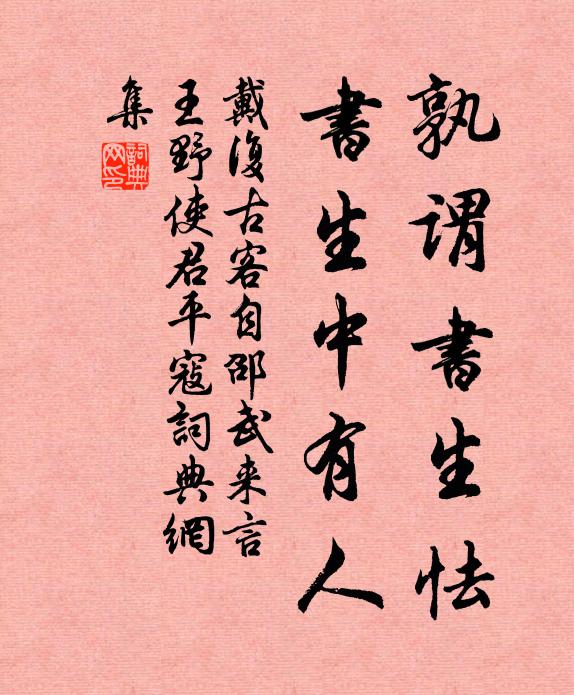 孰谓书生怯
书生中有人
戴復古客自邵武来言
王野使君平寇詞典網
集
詞典網印